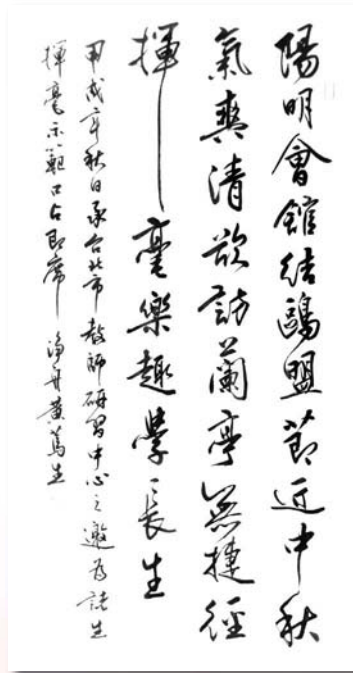 陽明會館結鷗盟節近中秋
氣爽清欲訪蘭亭無捷徑
揮毫樂趣學長生
甲戌年秋日承台北市教師研習中心之邀為諸生
揮毫示範口占即席 黃篤生